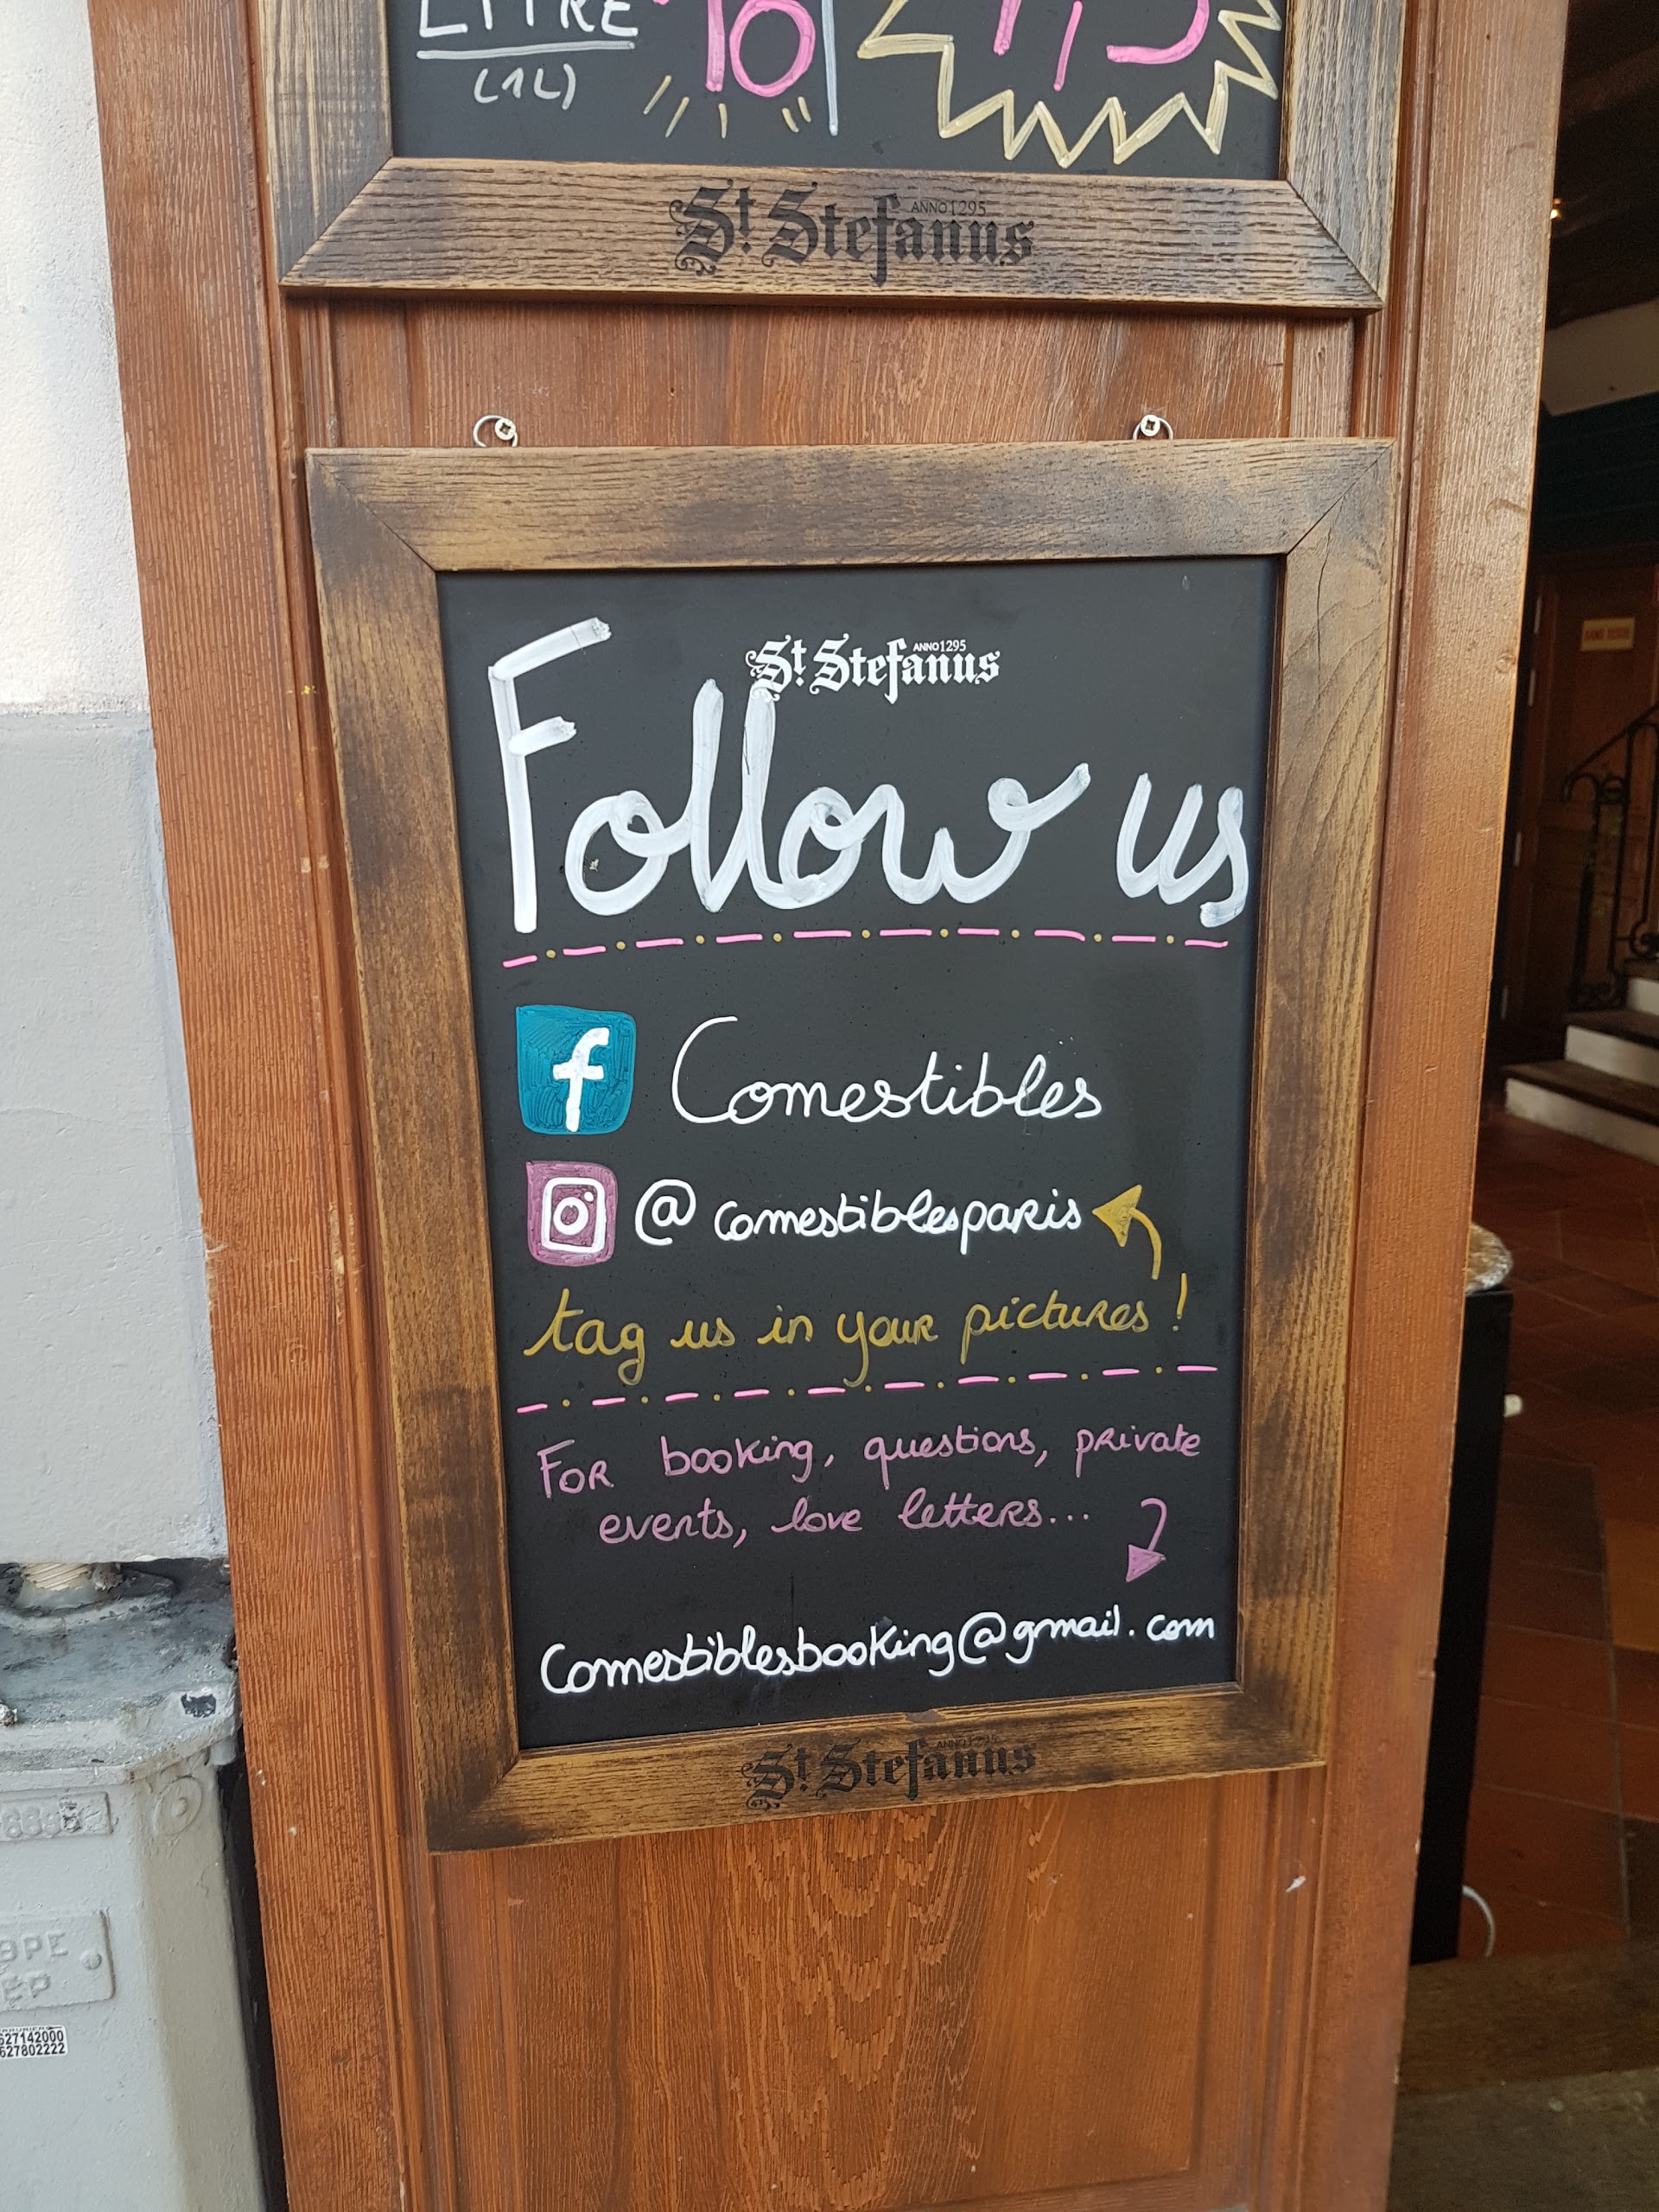 LITRE
(1L)
10
St Stefanus
ANNO 1295
St Stefanus
ANNO 1295
Follow us
f Comestibles
@comestiblesparis
tag us in your pictures !
FOR booking, questions, private
events, love letters...
Comestiblesbooking@gmail.com
St Stefanus
627142000
627802222